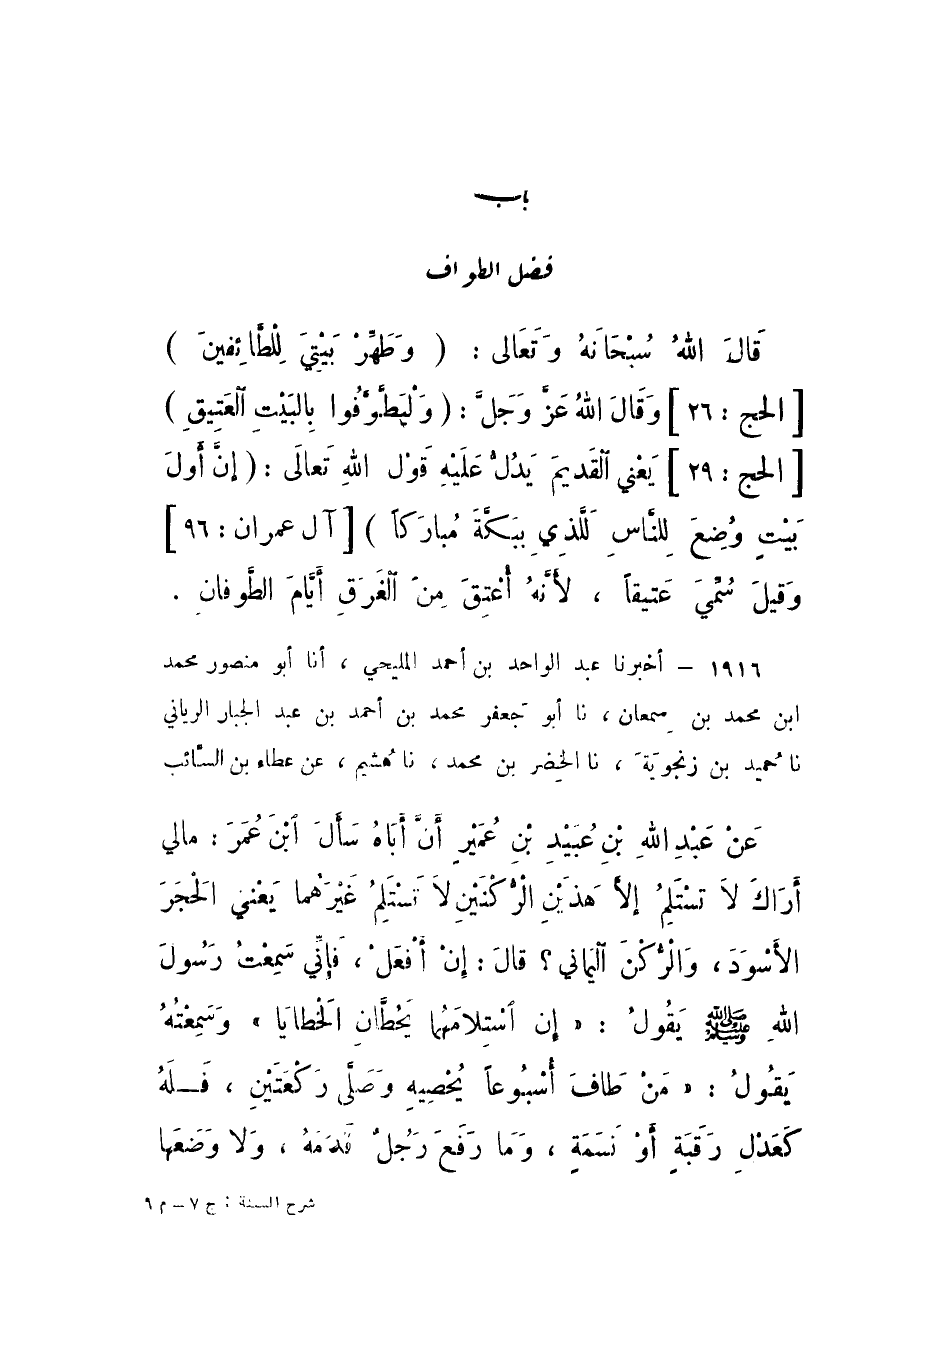 باب
فضل الطواف
قَالَ اللهُ سُبْحَانَهُ وَتَعَالى : ( وَطَهِّرْ بَيْتِيَ لِلْطَّائِفِينَ )
[ الحج : ٢٦ ] وَقَالَ اللهُ عَزَّ وَجَلَّ : ( وَلْيَطَّوَّفُوا بِالبَيْتِ العَتِيقِ )
[ الحج : ٢٩ ] يَعْني القَديمَ يَدُلُ عَلَيْهِ قَوْل اللهِ تَعالَى : ( إنَّ أَولَ
بَيْتٍ وُضِعَ لِلنَّاسِ لَلَّذِي بِبَكَّةَ مُبارَكاً ) [ آل عمران : ٩٦ ]
وَقيلَ سُمِّيَ عَتيقاً ، لأَنَّهُ أُعْتِقَ مِنَ الغَرَقِ أَيَّامَ الطُّوفانِ .
١٩١٦ – أخبرنا عبد الواحد بن أحمد المليحي ، أنا أبو منصور محمد
ابن محمد بن سِمعان ، نا أبو جَعفر محمد بن أحمد بن عبد الجبار الرياني
نا حُميد بن زنجويَةَ ، نا الخضر بن محمد ، نا هُشيم ، عن عطاء بن السَّائب
عَنْ عَبْدِ اللهِ بْنِ عُبَيْدِ بْنِ عُمَيْرٍ أَنَّ أَبَاهُ سَأَلَ ابْنَ عُمَرَ : مالي
أَرَاكَ لاَ تسْتَلِمُ إلاَّ هَذَيْنِ الرُّكْنَيْنِ لاَ تَسْتَلِمُ غَيْرَهُما يَعْني الَحْجَرَ
الأَسْوَدَ ، وَالْرُّكْنَ اليَماني ؟ قالَ : إنْ أَفْعَلْ ، فَإنِّي سَمِعْتُ رَسُولَ
اللهِ ﷺ يَقُولُ : « إن اسْتِلامَهُما يَحُطَّانِ الَخْطايَا » وَسَمِعْتُهُ
يَقُولُ : « مَنْ طَافَ أُسْبُوعاً يُحْصِيهِ وَصَلَّى رَكْعَتَيْنِ ، فَـلَهُ
كَعَدْلِ رَقَبَةٍ أَوْ نَسَمَةٍ ، وَمَا رَفَعَ رَجُلٌ قَدَمَهُ ، وَلا وَضَعَها
شرح السنة : ج ٧ – م ٩